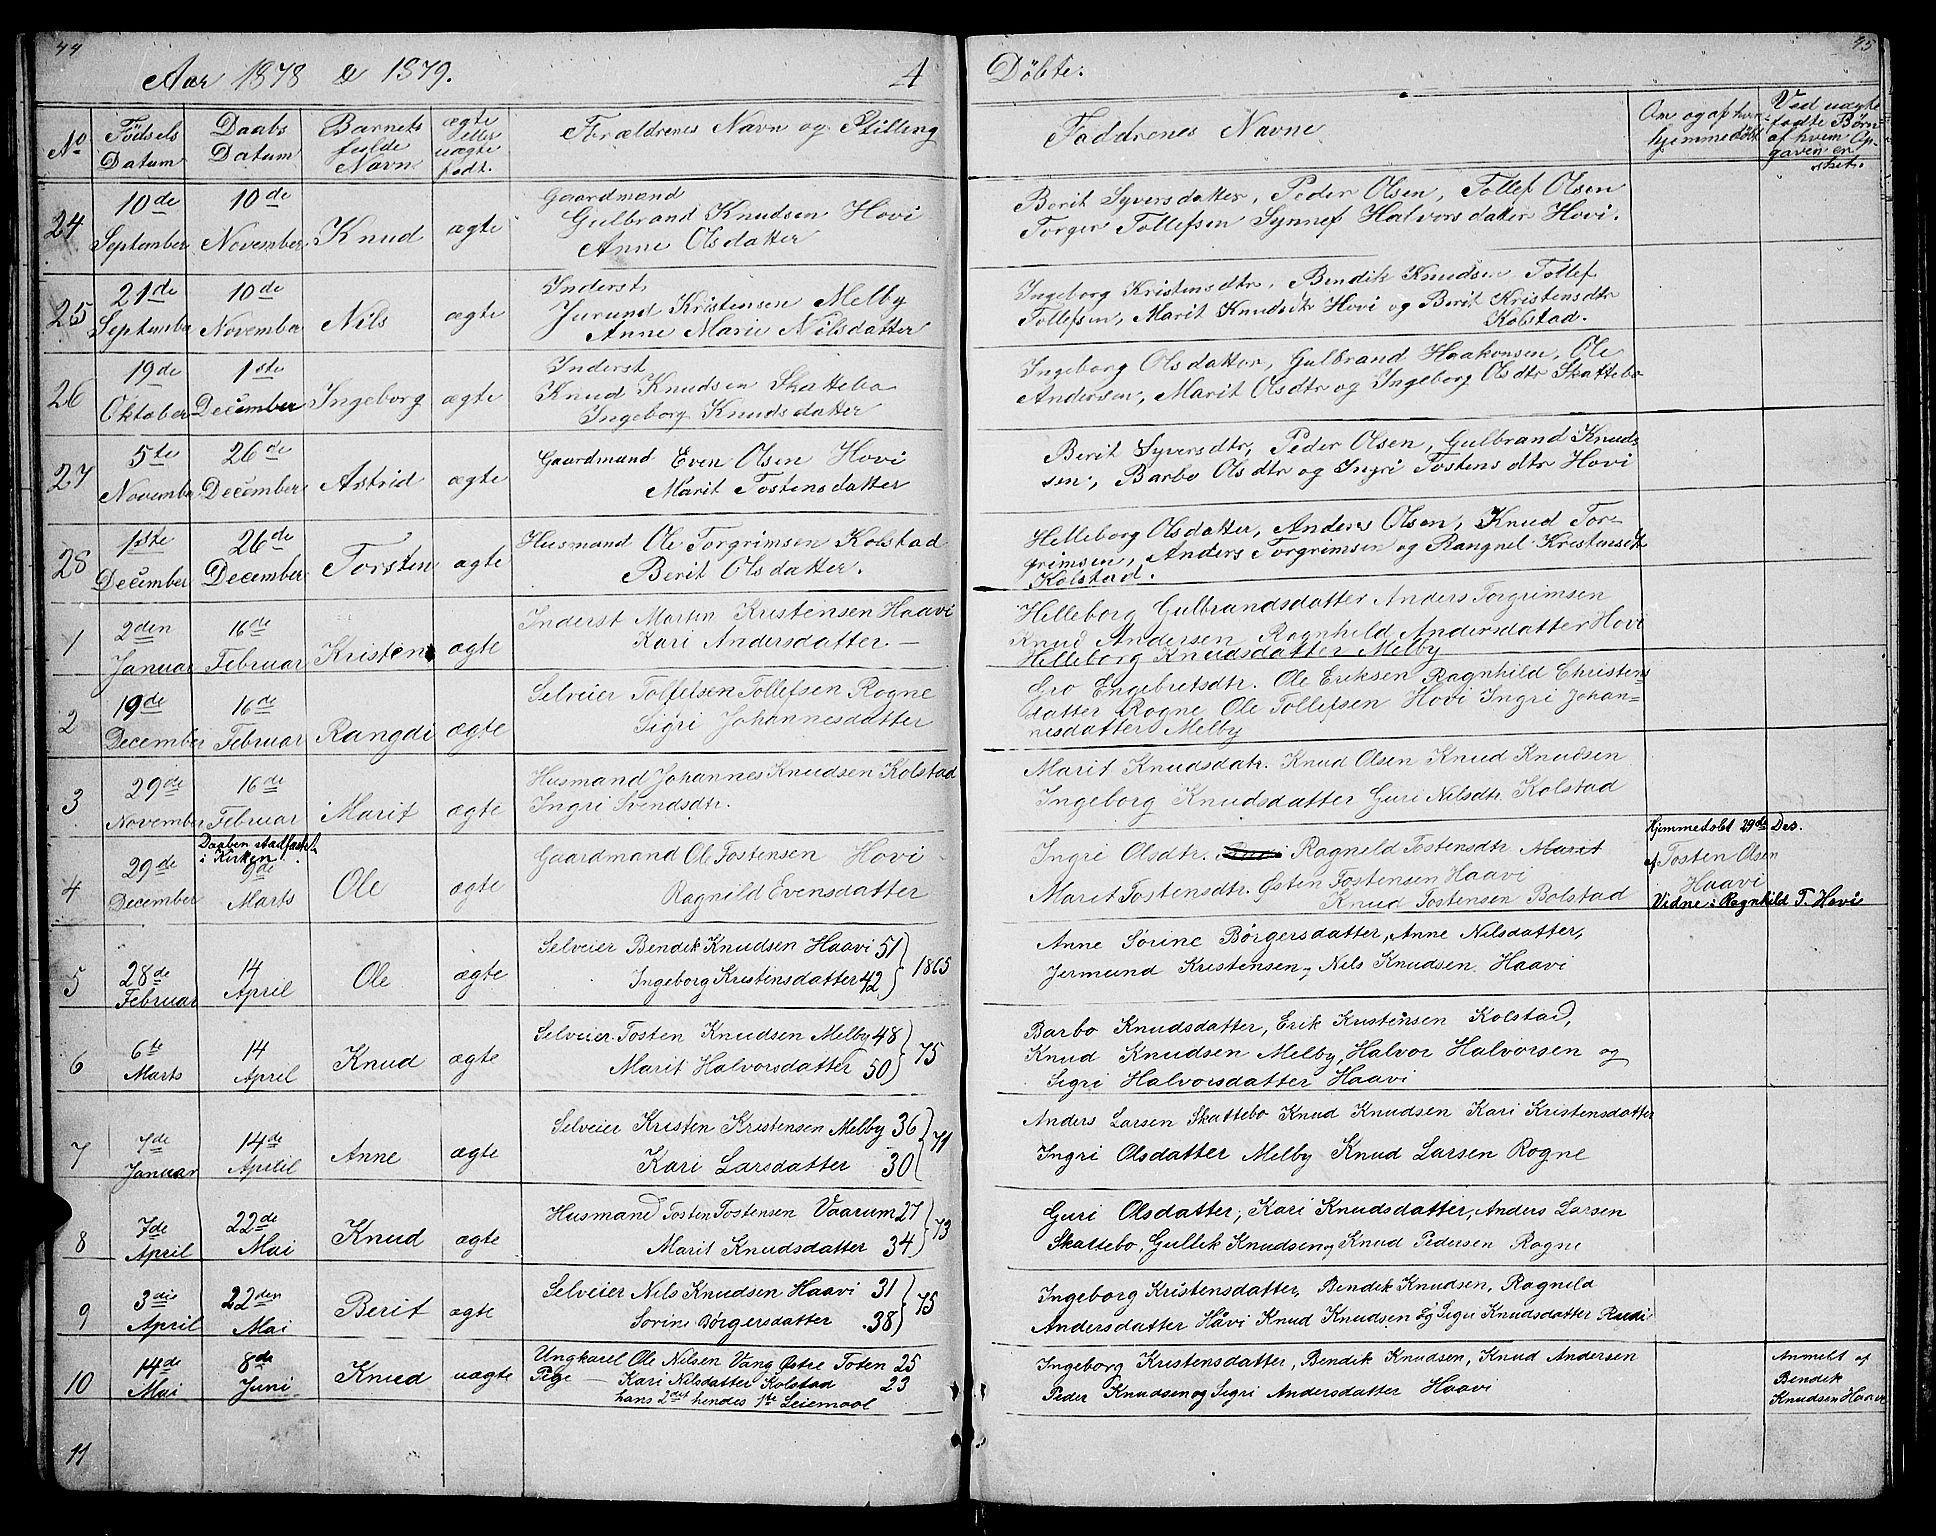 44
Aar 1878 & 1879.
4
Döbte.
45
No
Födsels Datum
Daabs Datum
Barnets fulde Navn
ægte eller uægte födt.
Forældrenes Navn og Stilling
Faddrenes Navne
Om og af hvem hjemmedöbt
Ved uægte födte Börn af hvem Opgaven er sket.
24
10de September
10de November
Knud
ægte
Gaardmand
Gulbrand Knudsen Hovi
Anne Olsdatter
Berit Syversdatter, Peder Olsen, Tollef Olsen
Torger Tollefsen Synnef Halvorsdatter Hovi.
25
21de September
10de November
Nils
ægte
Inderst
Jurund Kristensen Melby
Anne Marie Nilsdatter
Ingeborg Kristensdtr, Bendik Knudsen Tollef
Tollefsen, Marit Knudsdtr Hovi og Berit Kristensdtr
Kolstad.
26
19de Oktober
1ste December
Ingeborg
ægte
Inderst
Knud Knudsen Skattebo
Ingeborg Knudsdatter
Ingeborg Olsdatter, Gulbrand Haakonsen, Ole
Andersen, Marit Olsdtr og Ingeborg Olsdtr Skattebo
27
5te November
26de December
Astrid
ægte
Gaardmand Even Olsen Hovi
Marit Tostensdatter
Berit Syversdtr, Peder Olsen, Gulbrand Knud-
sen, Barbo Olsdtr og Ingri Tostensdtr Hovi
28
1ste December
26de December
Torsten
ægte
Husmand Ole Torgrimsen Kolstad
Berit Olsdatter.
Helleborg Olsdatter, Anders Olsen, Knud Tor-
grimsen, Anders Torgrimsen og Rangnel Kristensdt
Kolstad.
1
2den Januar
16de Februar
Kristen
ægte
Inderst Martin Kristensen Haavi
Kari Andersdatter
Helleborg Gulbrandsdatter Anders Torgrimsen
Knud Andersen Ragnhild Andersdatter Hovi
Helleborg Knudsdatter Melby
2
19de December
16de Februar
Rangdi
ægte
Selveier Tolfelsen Tollefsen Rogne
Sigri Johannesdatter
Gro Engebretsdtr. Ole Eriksen Ragnhild Christens
datter Rogne Ole Tollefsen Hovi Ingri Johan-
nesdatter Melby
3
29de November
16de Februar
Marit
ægte
Husmand Johannes Knudsen Kolstad
Ingri Svendsdtr.
Marit Knudsdatr. Knud Olsen Knud Knudsen
Ingeborg Knudsdatter Guri Nilsdtr. Kolstad
4
29de December
Daaben stadfæstet i Kirken 9de Marts
Ole
ægte
Gaardmand Ole Tostensen Hovi
Ragnild Evensdatter
Ingri Olsdtr. Ragnild Tostensdtr Marit
Marit Tostensdtr. Østen Tostensen Haavi
Knud Tostensen Bolstad
Hjemmedöbt 29de Des.
af Tosten Olsen
Haavi
Vidne: Ragnhild T. Hovi
5
28de Februar
14 April
Ole
ægte
Selveier Bendik Knudsen Haavi 51
Ingeborg Kristensdatter 42 } 1865
Anne Sörine Börgersdatter, Anne Nilsdatter,
Jermund Kristensen, Nils Knudsen Haavi
6
6te Marts
14 April
Knud
ægte
Selveier Tosten Knudsen Melby 48
Marit Halvorsdatter 50 } 75
Barbo Knudsdatter, Erik Kristensen Kolstad,
Knud Knudsen Melby, Halvor Halvorsen og
Sigri Halvorsdatter Haavi
7
7de Januar
14de Aprlil
Anne
ægte
Selveier Kristen Kristensen Melby 36
Kari Larsdatter 30 } 71
Anders Larsen Skattebo Knud Knudsen Kari Kristensdatter
Ingri Olsdatter Melby Knud Larsen Rogne
8
7de April
22de Mai
Knud
ægte
Husmand Tosten Tostensen Vaarum 27
Marit Knudsdatter 34 } 73
Guri Olsdatter, Kari Knudsdatter, Anders Larsen
Skattebo, Gullik Knudsen, Knud Pedersen Rogne
9
3die April
22den Mai
Berit
ægte
Selveier Nils Knudsen Haavi 31
Sörine Börgersdatter 38 } 75
Ingeborg Kristensdatter, Bendik Knudsen, Ragnild
Andersdatter Hävi Knud Knudsen og Sigri Knudsdatter Rudi
10
14de Mai
8de Juni
Knud
uægte
Ungkarel Ole Nilsen Vang Østre Toten 25
Pige — Kari Nilsdatter Kolstad 23
hans 2det hendes 1ste Leiemaal
Ingeborg Kristensdatter, Bendik Knudsen, Knud Andersen
Peder Knudsen og Sigri Andersdatter Haavi
Anmelt af
Bendik
Knudsen Haavi
11